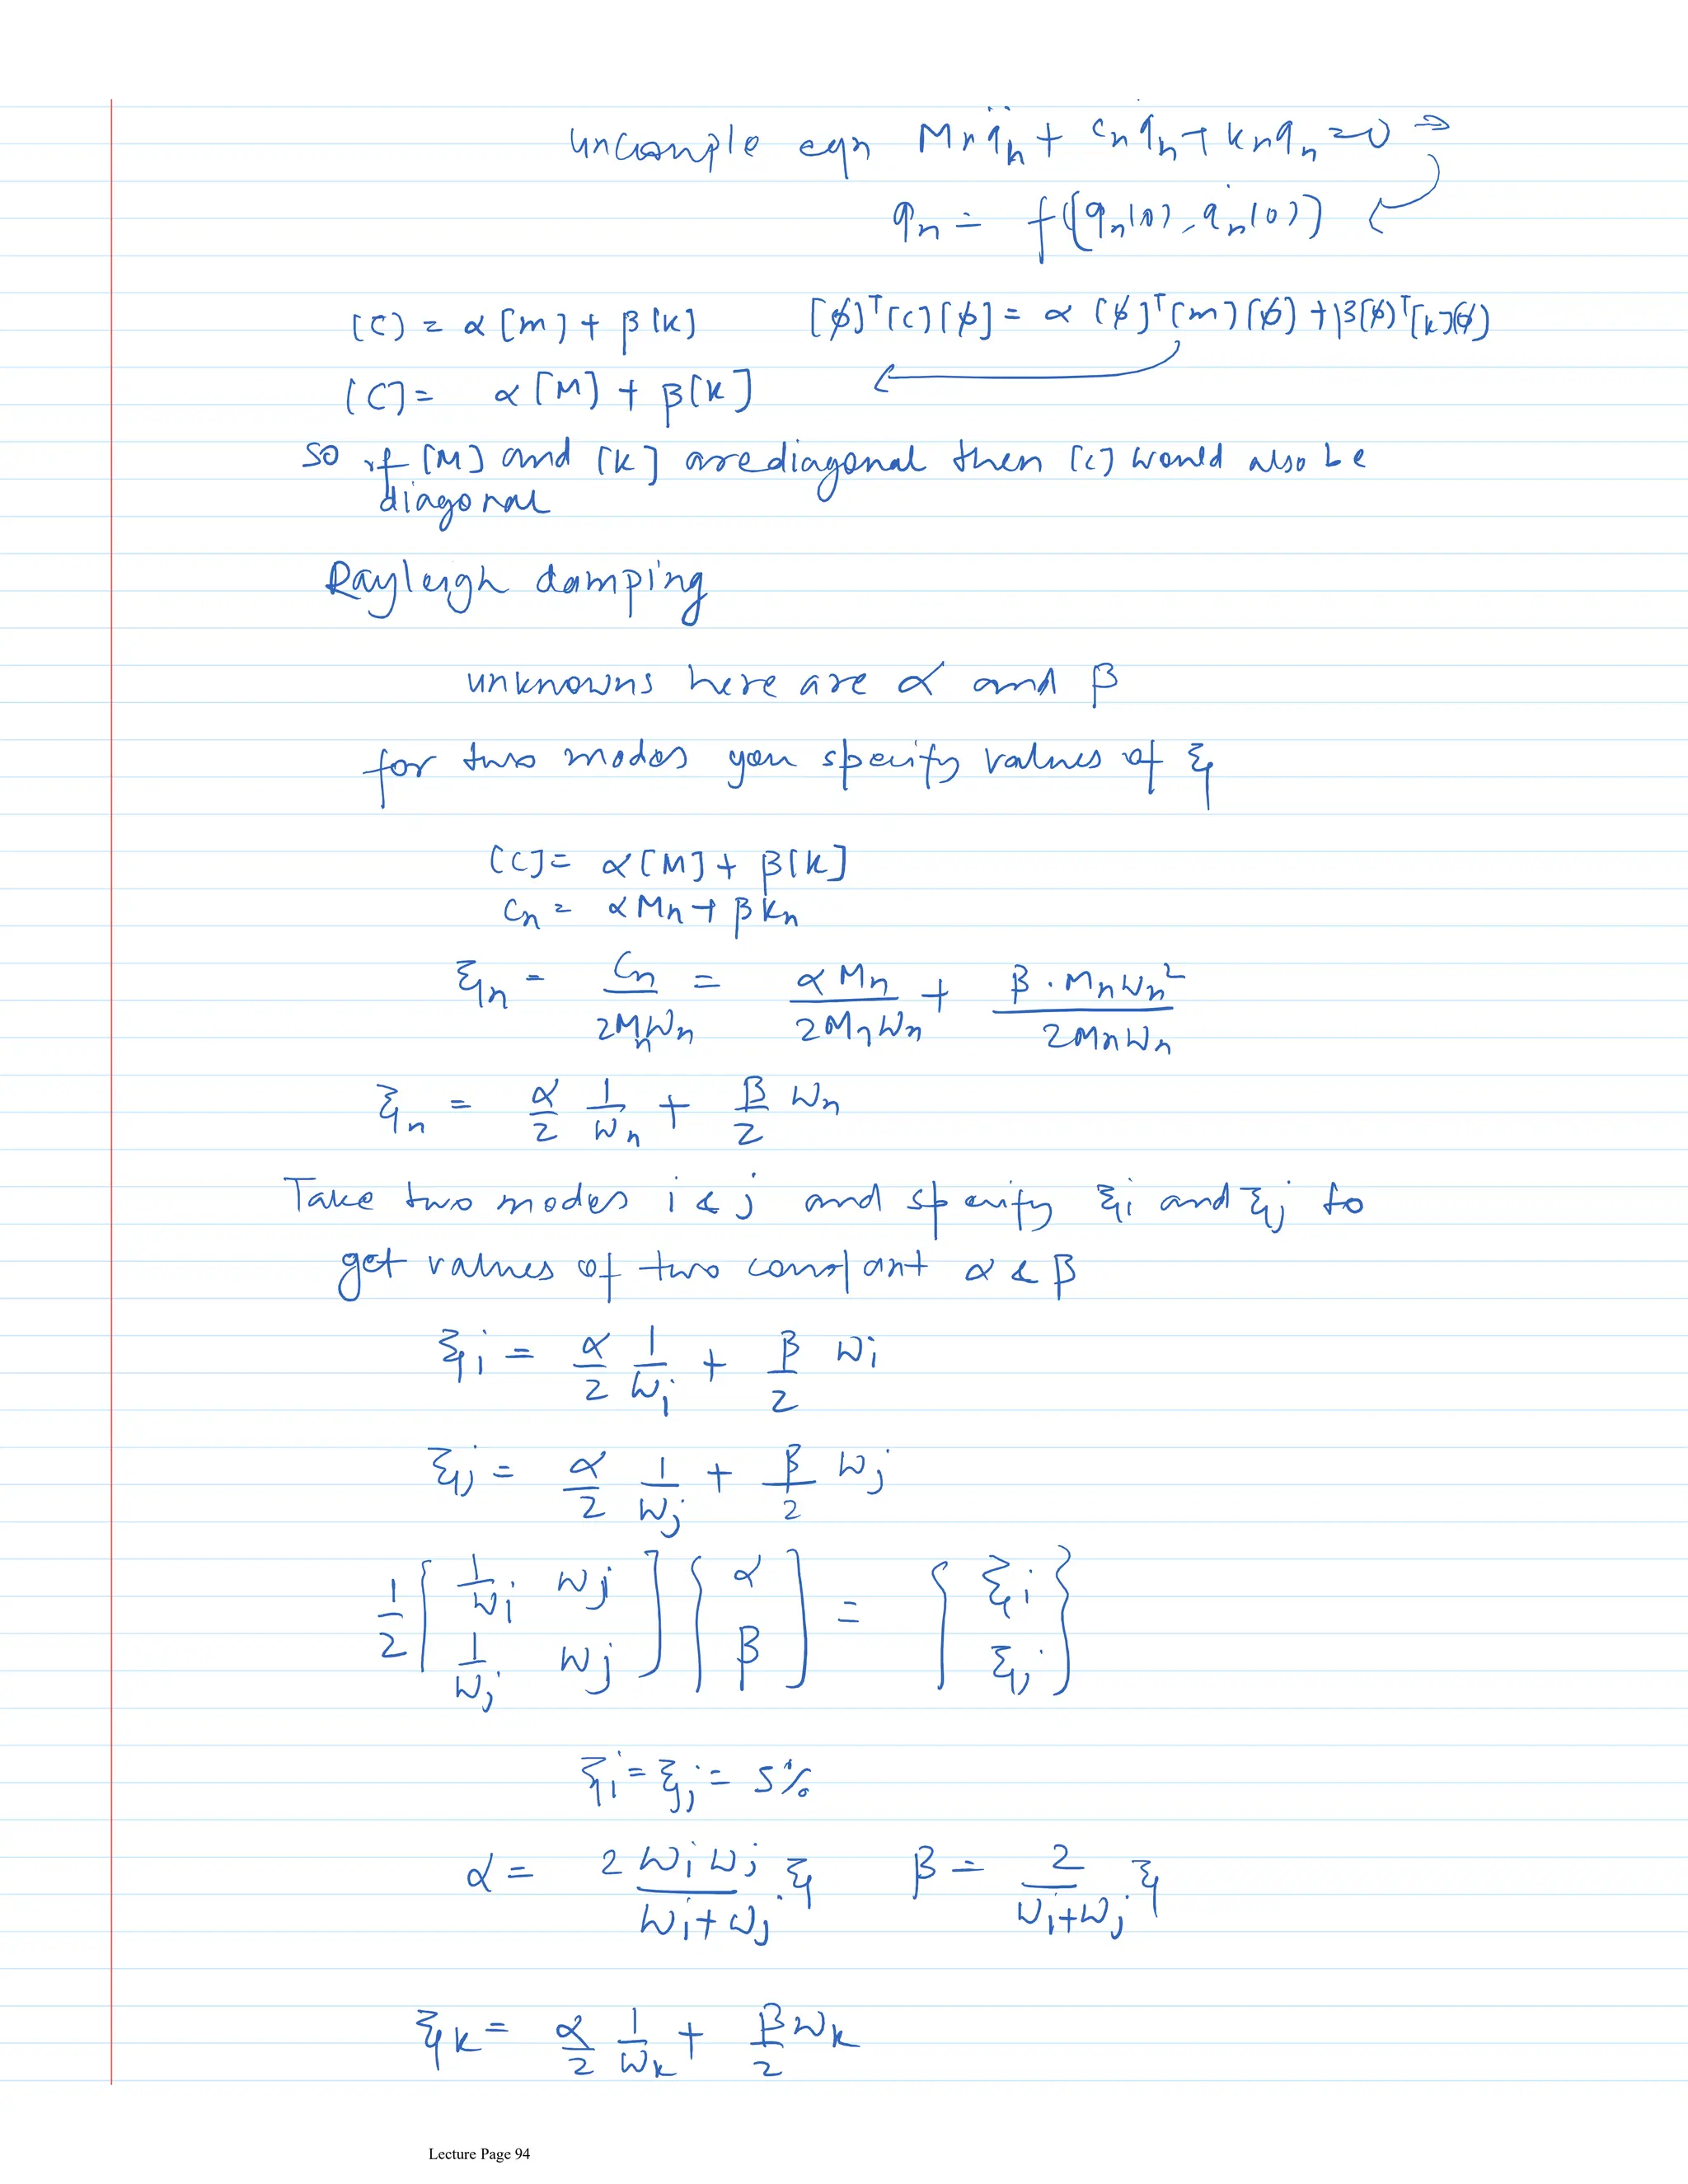 uncouple eqn Mn q̈n + cn q̇n + kn qn = 0 ⇒
qn = f(qn(0), q̇n(0))
[c] = α[m] + β[k] [ϕ]ᵀ[c][ϕ] = α[ϕ]ᵀ[m][ϕ] + β[ϕ]ᵀ[k][ϕ]
[C] = α[M] + β[K]
so if [M] and [K] are diagonal then [C] would also be
diagonal
Rayleigh damping
unknowns here are α and β
for two modes you specify values of ξ
[C] = α[M] + β[K]
Cn = αMn + βKn
ξn = Cn/2Mnωn = αMn/2Mnωn + β·Mnωn²/2Mnωn
ξn = α/2 1/ωn + β/2 ωn
Take two modes i & j and specify ξi and ξj to
get values of two constant α & β
ξi = α/2 1/ωi + β/2 ωi
ξj = α/2 1/ωj + β/2 ωj
1/2 [1/ωi ωj; 1/ωj ωj] {α; β} = {ξi; ξj}
ξi = ξj = 5%
α = 2ωiωj/(ωi+ωj) ξ β = 2/(ωi+ωj) ξ
ξk = α/2 1/ωk + β/2 ωk
Lecture Page 94